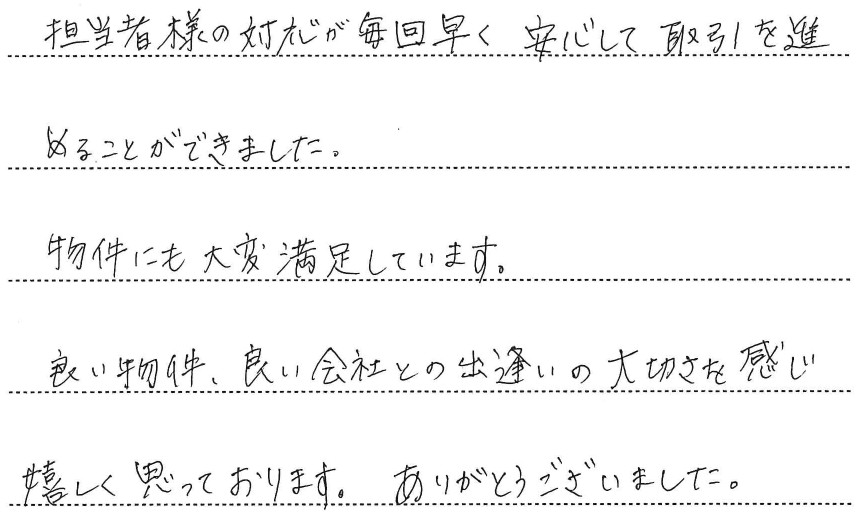 担当者様の対応が毎回早く 安心して 取引を進
めることができました。
物件にも 大変満足しています。
良い物件、良い会社との出逢いの大切さを感じ
嬉しく思っております。 ありがとうございました。